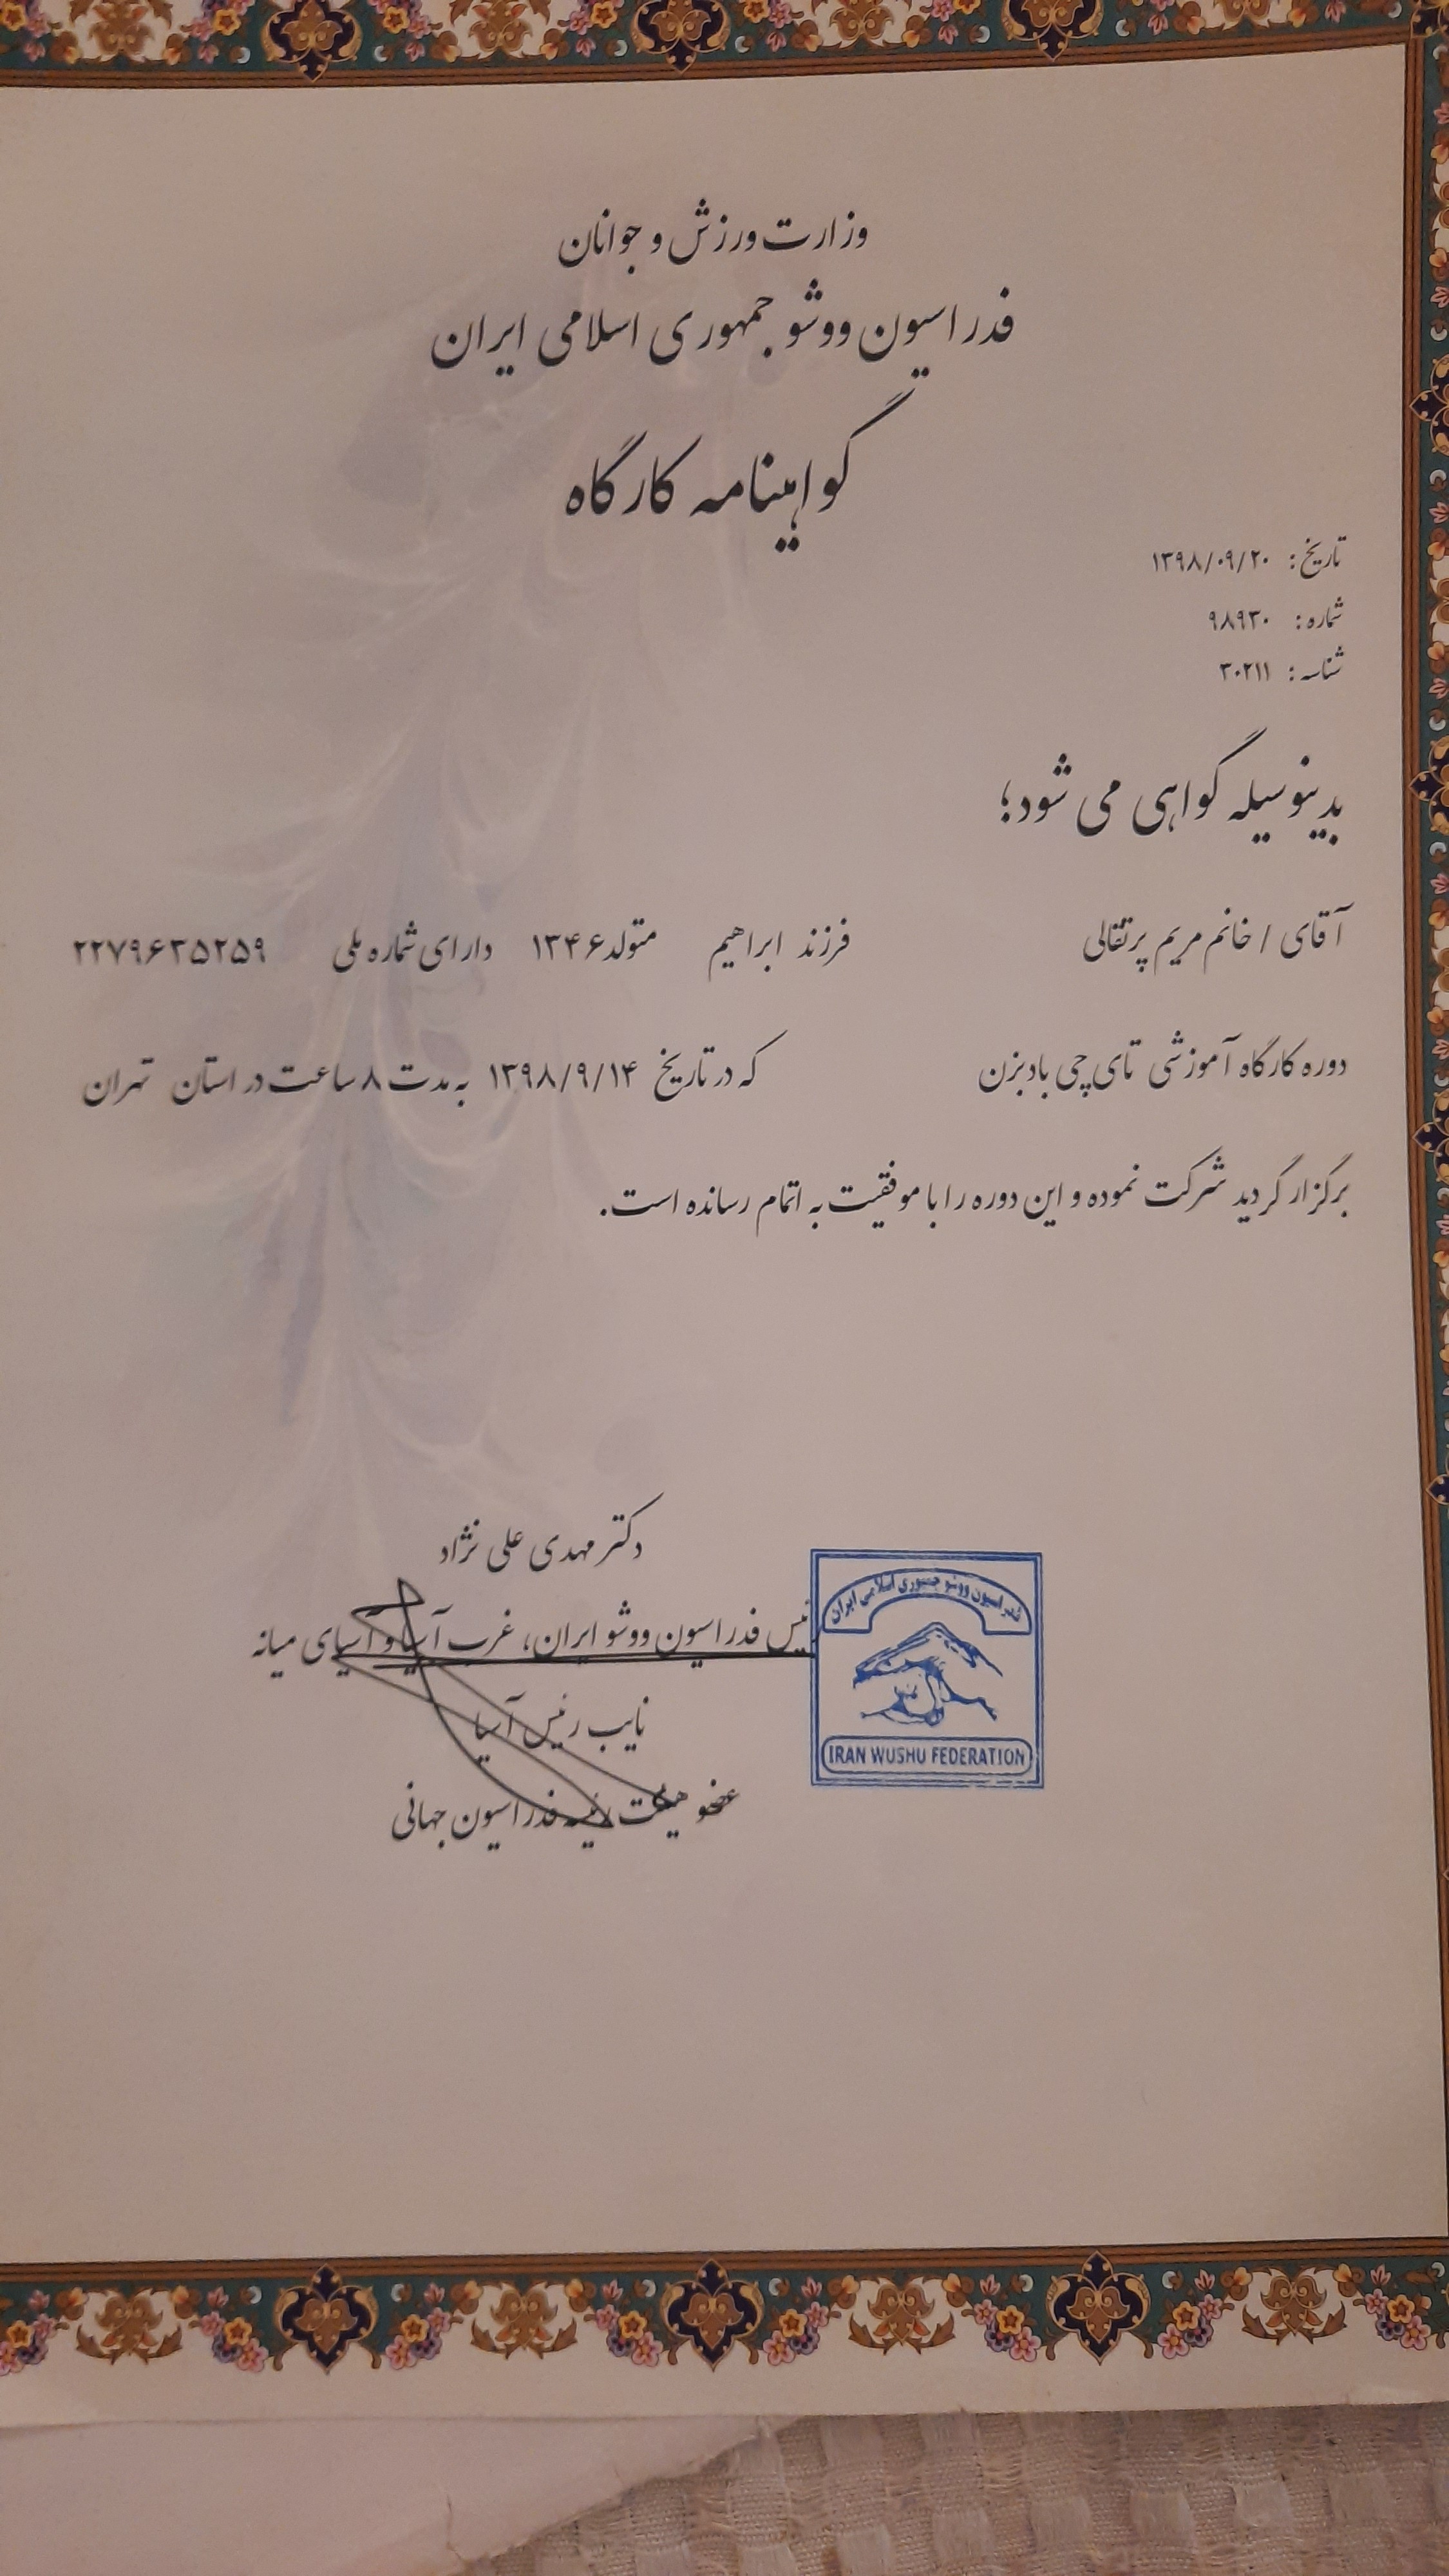 وزارت ورزش و جوانان
فدراسیون ووشو جمهوری اسلامی ایران
گواهینامه کارگاه
تاریخ: ۱۳۹۸/۰۹/۲۰
شماره: ۹۸۹۳۰
شناسه: ۳۰۲۱۱
بدینوسیله گواهی می شود؛
آقای / خانم مریم پرتقالی فرزند ابراهیم متولد ۱۳۴۶ دارای شماره ملی ۲۲۷۹۶۳۵۲۵۹
دوره کارگاه آموزشی تای چی بادبزن که در تاریخ ۱۳۹۸/۹/۱۴ به مدت ۸ ساعت در استان تهران
برگزار گردید شرکت نموده و این دوره را با موفقیت به اتمام رسانده است.
دکتر مهدی علی نژاد
رئیس فدراسیون ووشو ایران، غرب آسیا و آسیای میانه
نایب رئیس آسیا
عضو هیئت رئیسه فدراسیون جهانی
فدراسیون ووشو جمهوری اسلامی ایران
IRAN WUSHU FEDERATION